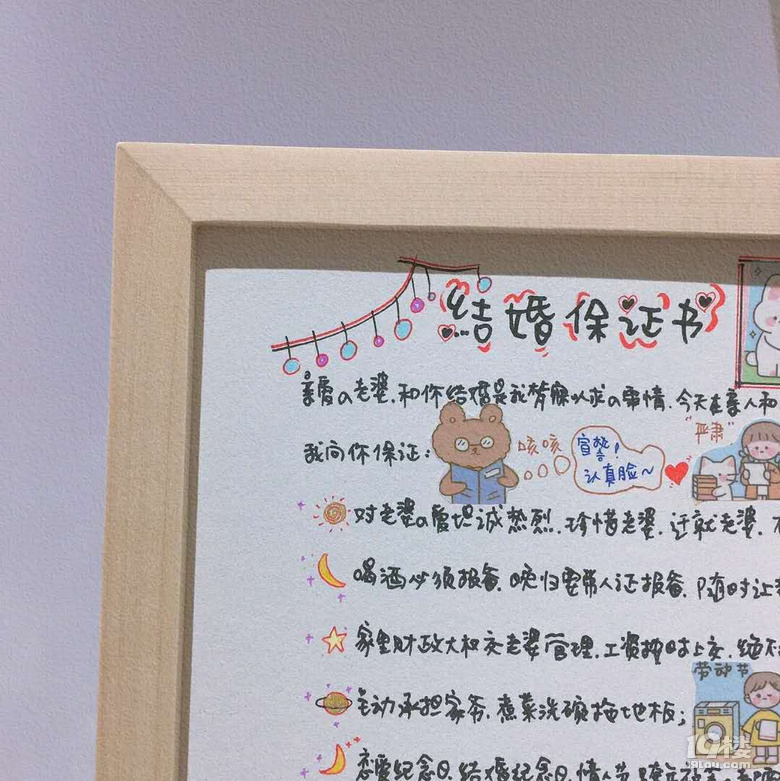 结婚保证书
亲爱の老婆,和你结婚是我梦寐以求の事情,今天在亲人和
"严肃"
我向你保证:
咳咳
宣誓!
认真脸~
对老婆の爱坦诚热烈,珍惜老婆,迁就老婆,
喝酒必须报备,晚归要带人证报备,随时让
家里财政大权交老婆管理,工资按时上交,绝不
劳动节
主动承担家务,煮菜洗碗拖地板;
恋爱纪念日,结婚纪念日,情人节,
19楼
19lou.com